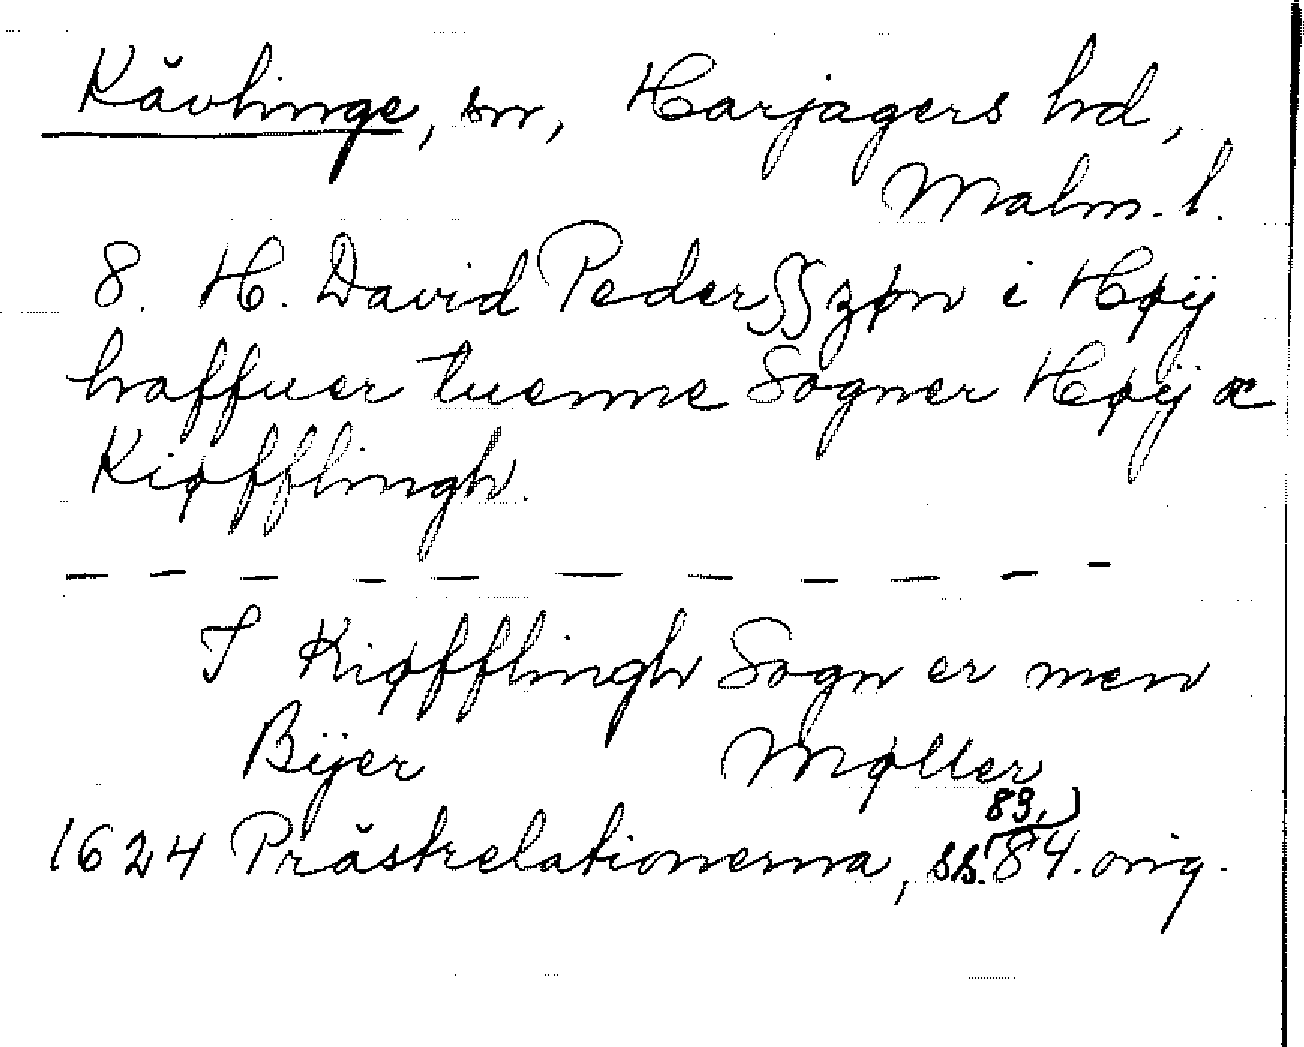 Kävlinge, sn, Harjagers hd,
Malm. l.
8. H. David Pederßzøn i Høÿ
haffuer tuenne Sogner Høÿ æ
Kiøfflingh.
— — — — — — — — — — —
I Kiøfflingh Sogn er men
Bÿer Møller
83,
1624 Prästrelationerna, ss. 84. orig.